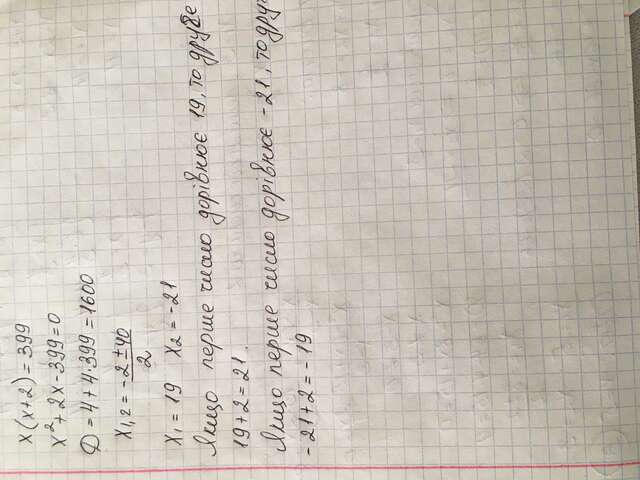 x(x+2)=399
x²+2x-399=0
D=4+4·399=1600
x₁,₂=-2±40/2
x₁=19 x₂=-21
Якщо перше число дорівнює 19, то друге
19+2=21.
Якщо перше число дорівнює -21, то
-21+2=-19